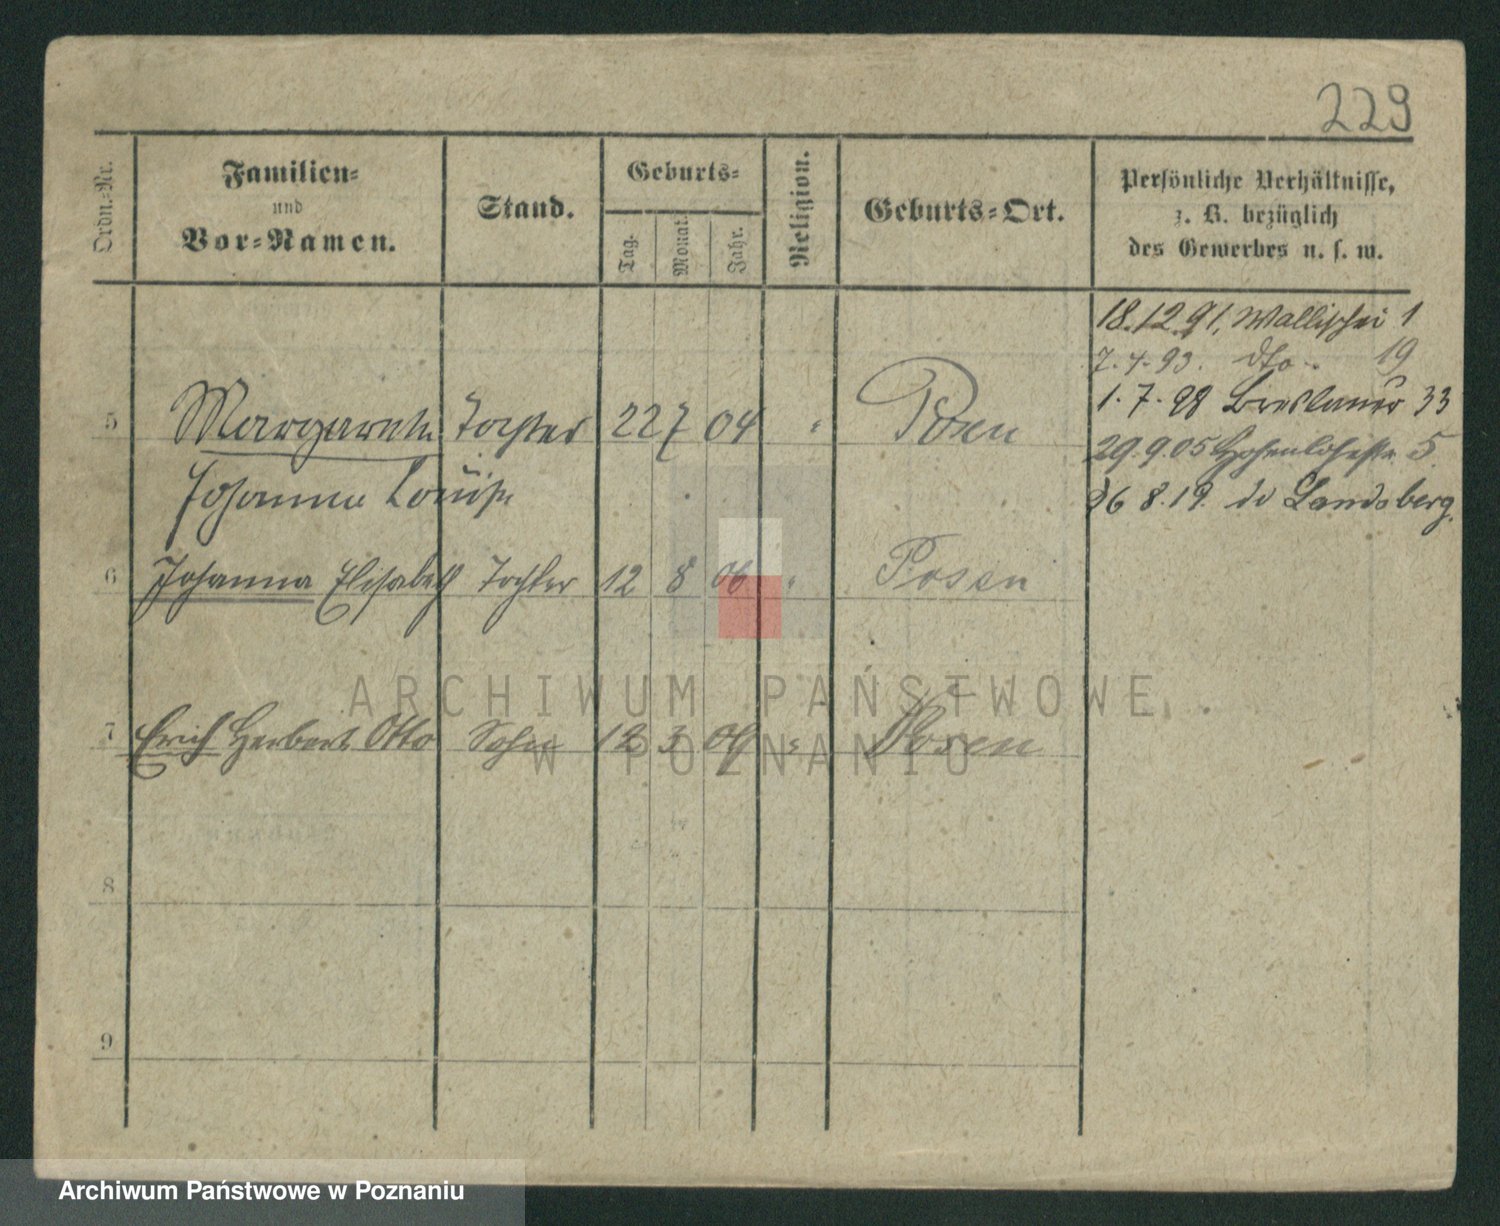 229
Ordn.-Nr.
Familien-
und
Vor-Namen.
Stand.
Geburts-
Tag.
Monat.
Jahr.
Religion.
Geburts-Ort.
Persönliche Verhältnisse,
z. B. bezüglich
des Gewerbes u. s. w.
18.12.91, Wallischei 1
7.4.93. dto. 19
1.7.98 Breslauer 33
29.9.05 Hohenlohestr. 5.
26 8.19. Landsberg.
5 Margarethe Tochter 22 7 04 " Posen
Johanna Louise
6 Johanna Elisabeth Tochter 12 8 06 " Posen
7 Erich Herbert Otto Sohn 12 3 09 " Posen
8
9
ARCHIWUM PAŃSTWOWE
W POZNANIU
Archiwum Państwowe w Poznaniu